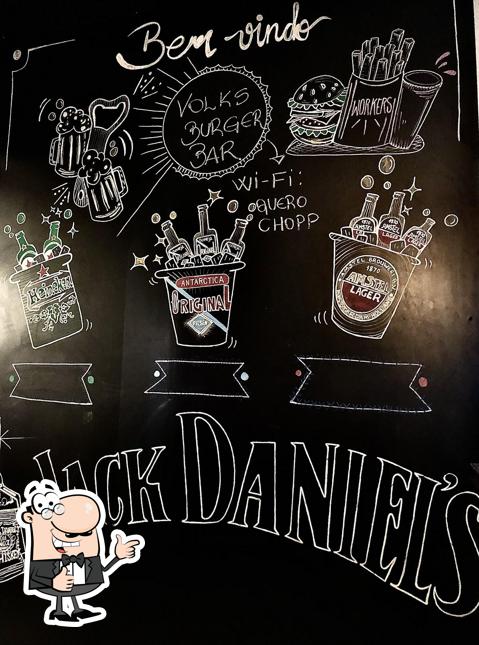 Bem-vindo
VOLKS
BURGER
BAR
WORKERS
Wi-Fi:
QUERO
CHOPP
Heineken
ANTARCTICA
ORIGINAL
AMSTEL
LAGER
1870
AMSTEL
LAGER
JACK DANIEL'S